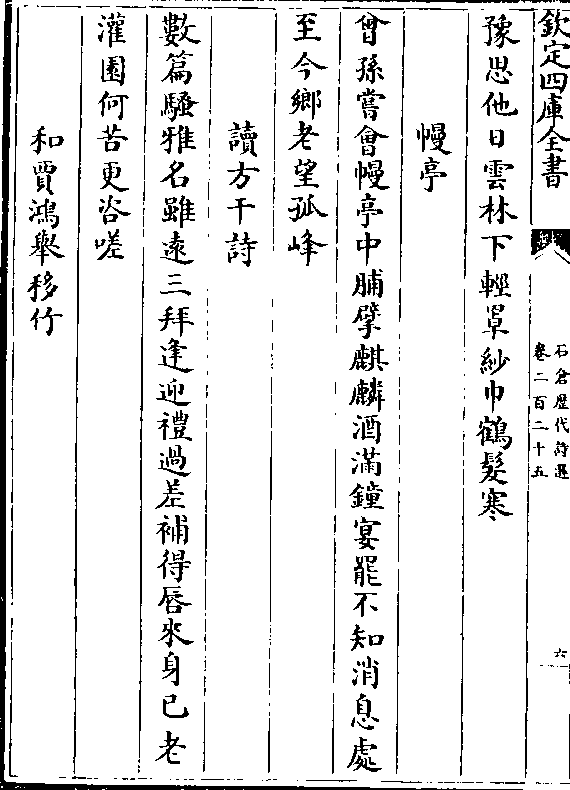 欽定四庫全書
石倉歷代詩選
卷二百二十五
六
豫思他日雲林下輕罩紗巾鶴髮寒
幔亭
曾孫嘗會幔亭中脯擘麒麟酒滿鐘宴罷不知消息處
至今鄉老望孤峰
讀方干詩
數篇騷雅名雖遠三拜逢迎禮過差補得唇來身已老
灌園何苦更咨嗟
和賈鴻舉移竹